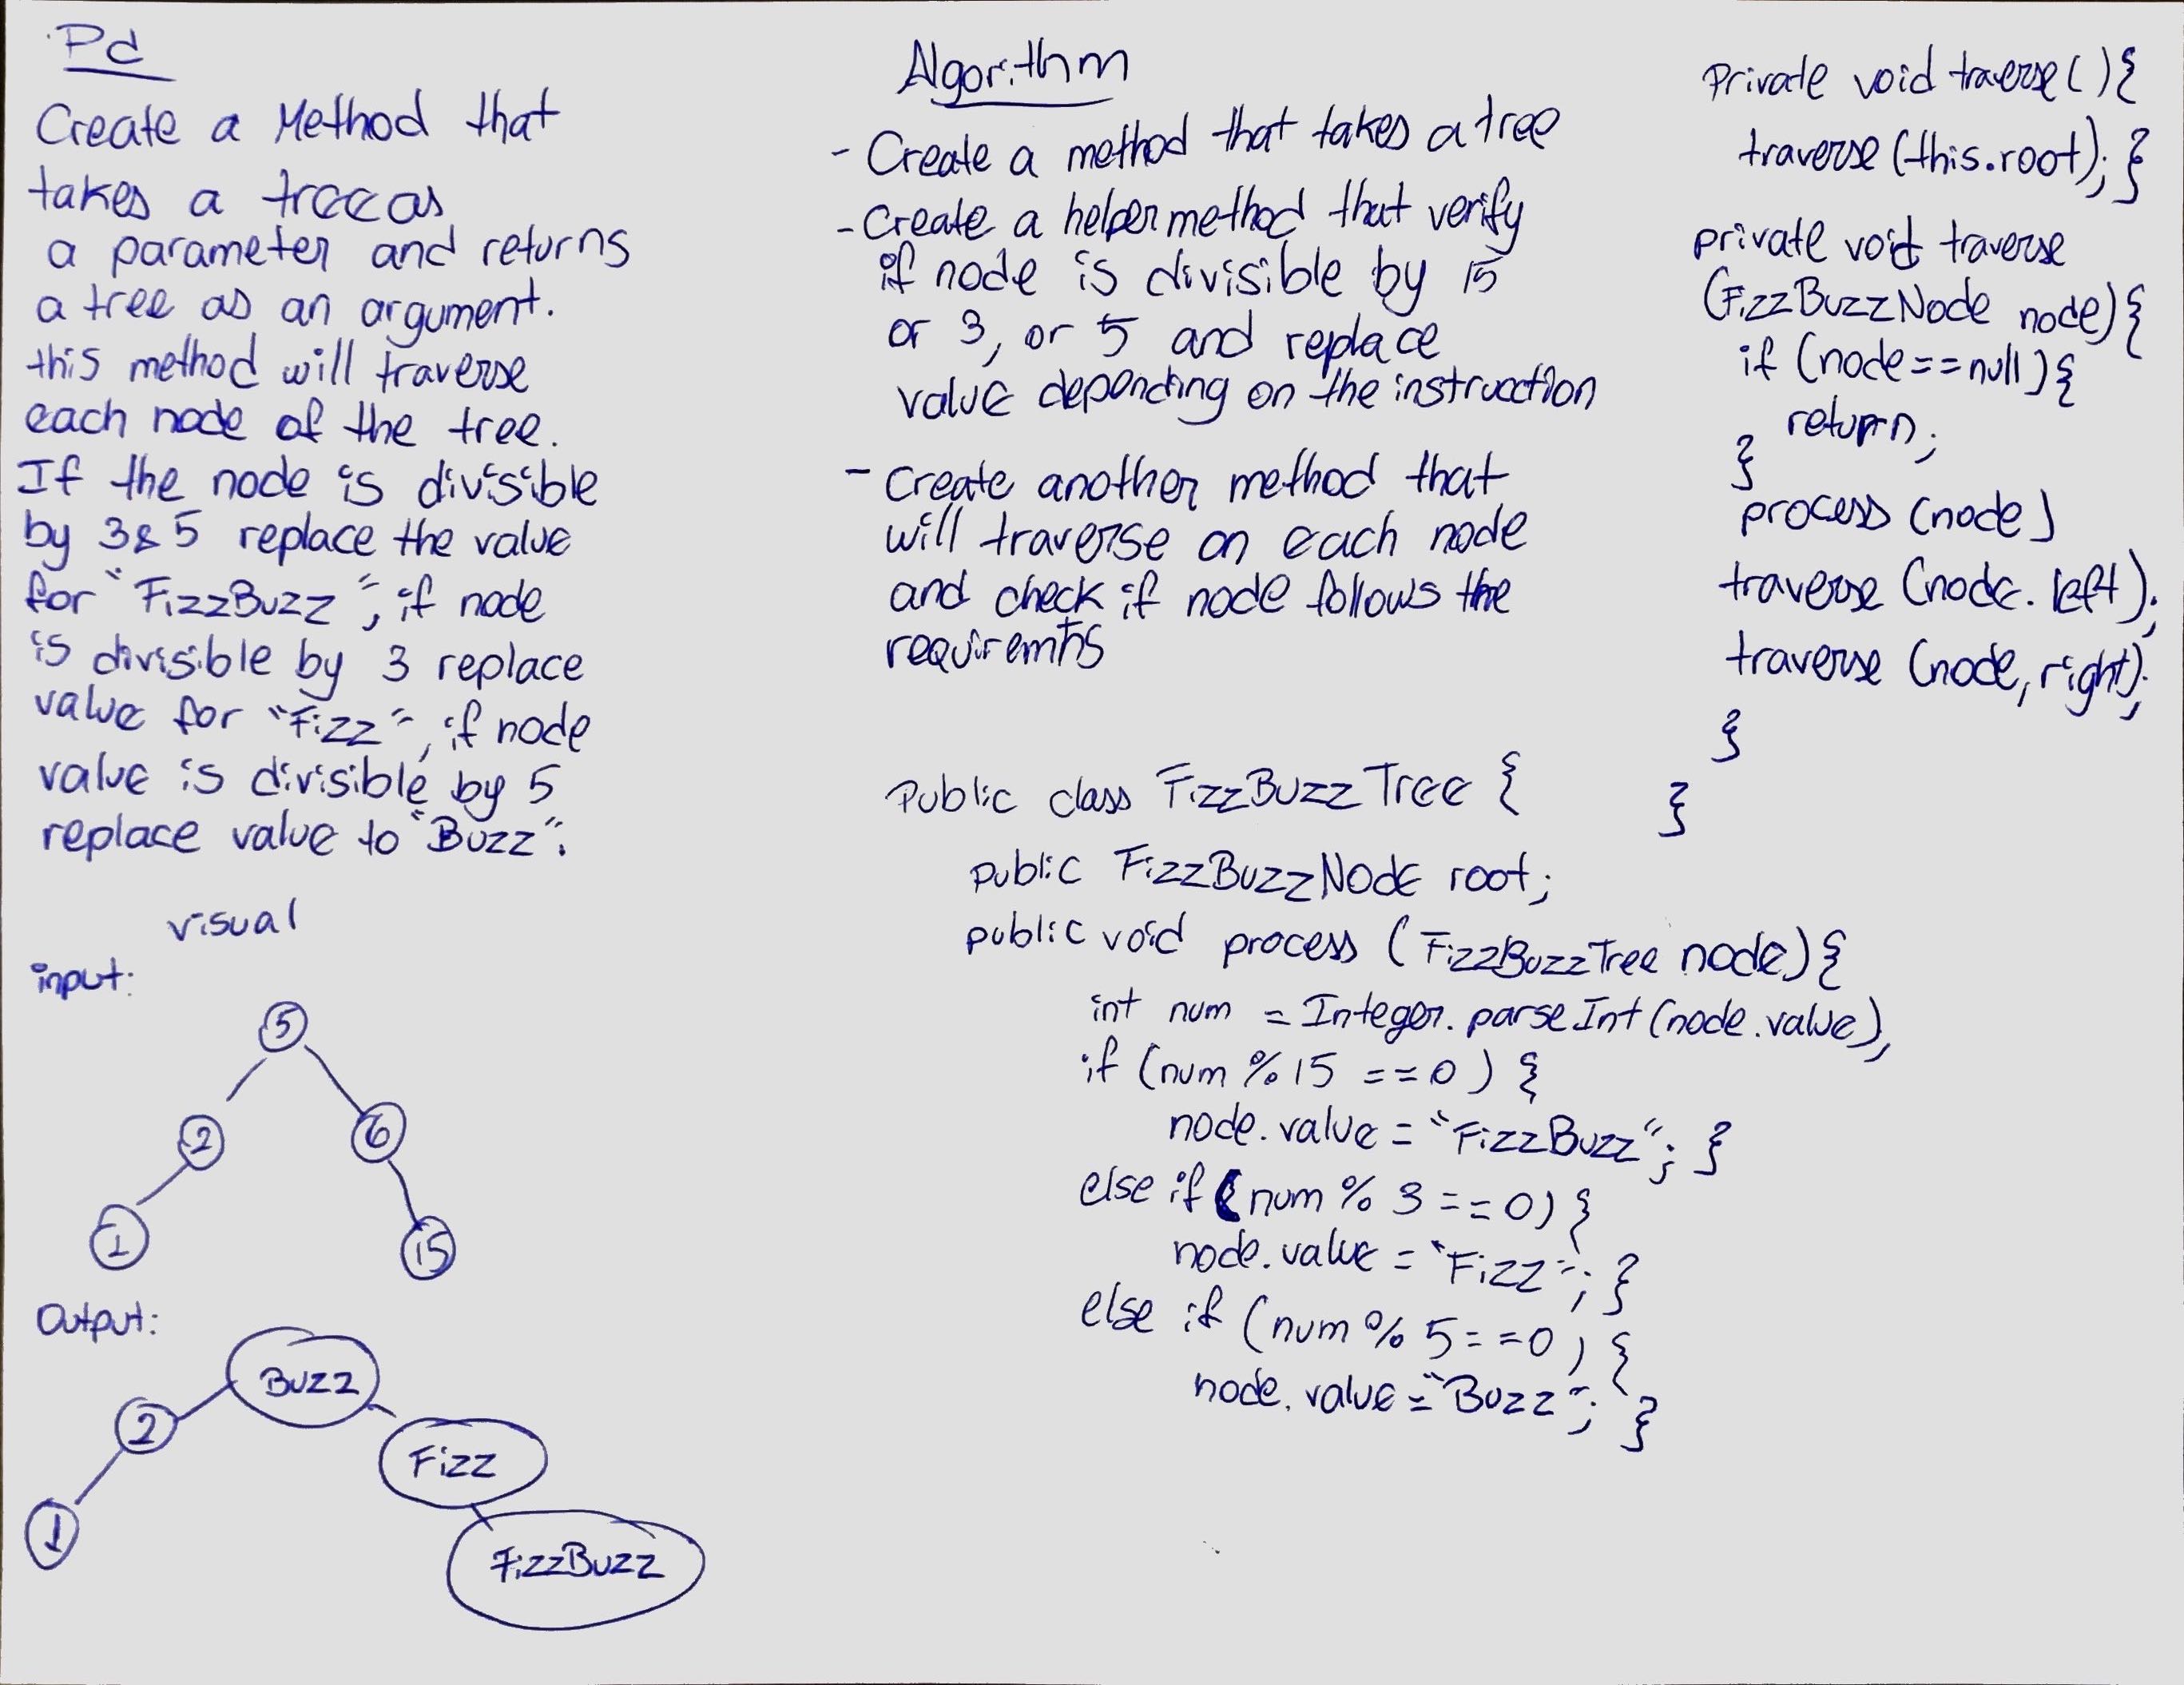 Pd
Create a Method that
takes a tree as
a parameter and returns
a tree as an argument.
this method will traverse
each node of the tree.
If the node is divisible
by 3 & 5 replace the value
for "FizzBuzz", if node
is divisible by 3 replace
value for "Fizz", if node
value is divisible by 5
replace value to "Buzz".
visual
input:
5
2 6
1 15
Output:
Buzz
2 Fizz
1 FizzBuzz
Algorithm
- Create a method that takes a tree
- Create a helper method that verify
if node is divisible by 15
or 3, or 5 and replace
value depending on the instruction
- Create another method that
will traverse on each node
and check if node follows the
requiremtns
Public class FizzBuzzTree {
public FizzBuzzNode root;
public void process (FizzBuzzTree node) {
int num = Integer.parseInt(node.value),
if (num % 15 == 0) {
node.value = "FizzBuzz"; }
else if (num % 3 == 0) {
node.value = "Fizz"; }
else if (num % 5 == 0) {
node.value = "Buzz"; }
Private void traverse() {
traverse (this.root); }
private void traverse
(FizzBuzzNode node) {
if (node == null) {
return;
}
process (node)
traverse (node.left);
traverse (node, right);
}
}